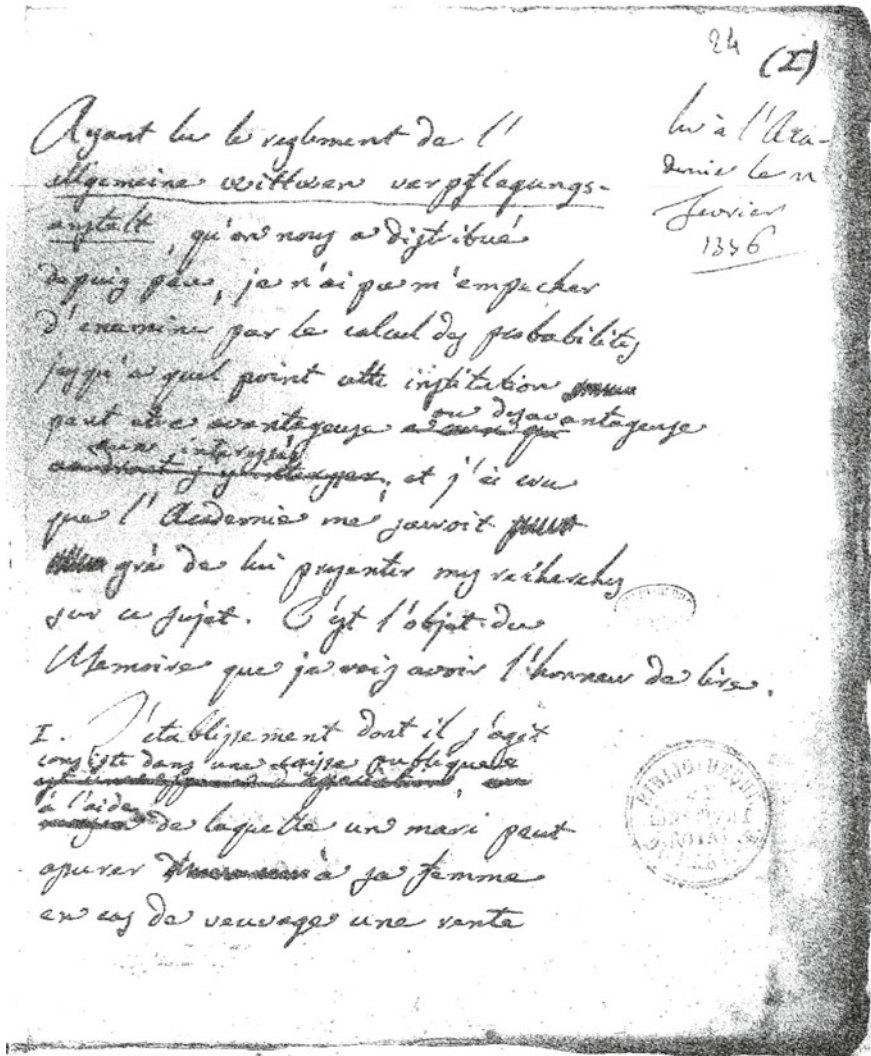 24 (I)
lu à l'Aca-
demie le
fevrier
Ayant lu le reglement de l'
allgemeine wittwen verpflegungs-
anstalt, qu'on nous a distribué
depuis peu, je n'ai pu m'empecher
d'examiner par le calcul des probabilités
jusqu'a quel point cette institution
peut etre avantageuse ou desavantageuse
aux interessés, et j'ai cru
que l'Academie me sauroit
gré de lui presenter mes recherches
sur ce sujet. C'est l'objet du
Memoire que je vais avoir l'honneur de lire.
I. L'etablissement dont il s'agit
consiste dans une caisse publique
à l'aide de laquelle un mari peut
assurer à sa femme
en cas de veuvage une rente